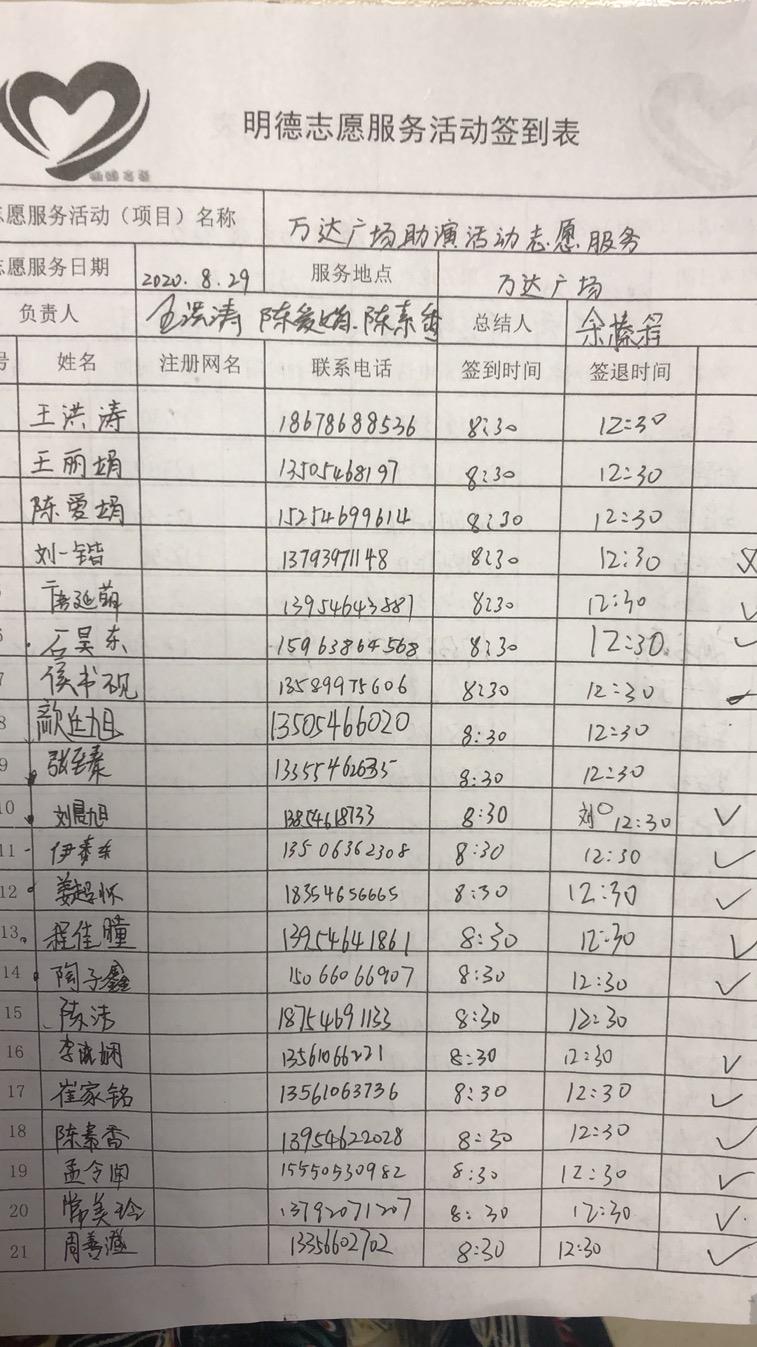 明德志愿服务活动签到表
志愿服务活动（项目）名称 万达广场助演活动志愿服务
愿服务日期 2020.8.29 服务地点 万达广场
负责人 王洪涛 陈爱娟.陈素香 总结人
号 姓名 注册网名 联系电话 签到时间 签退时间
王洪涛 18678688536 8:30 12:30
王丽娟 13505468197 8:30 12:30
陈爱娟 15254699614 8:30 12:30
刘一锴 13793971148 8:30 12:30
唐延萌 13954643887 8:30 12:30
石昊东 15963864568 8:30 12:30
7 侯书砚 13589975606 8:30 12:30
8 13505466020 8:30 12:30
9 13355462635 8:30 12:30
10 刘晨旭 13854618733 8:30 刘 12:30
11 伊泰东 13506362308 8:30 12:30
12 姜超怀 18354656665 8:30 12:30
13 程佳瞳 13954641861 8:30 12:30
14 陶子鑫 15066066907 8:30 12:30
15 陈洁 18754691133 8:30 12:30
16 13561066221 8:30 12:30
17 崔家铭 13561063736 8:30 12:30
18 陈素香 13954622028 8:30 12:30
19 孟令闻 15550530982 8:30 12:30
20 常美玲 13792071207 8:30 12:30
21 周善 13356602702 8:30 12:30